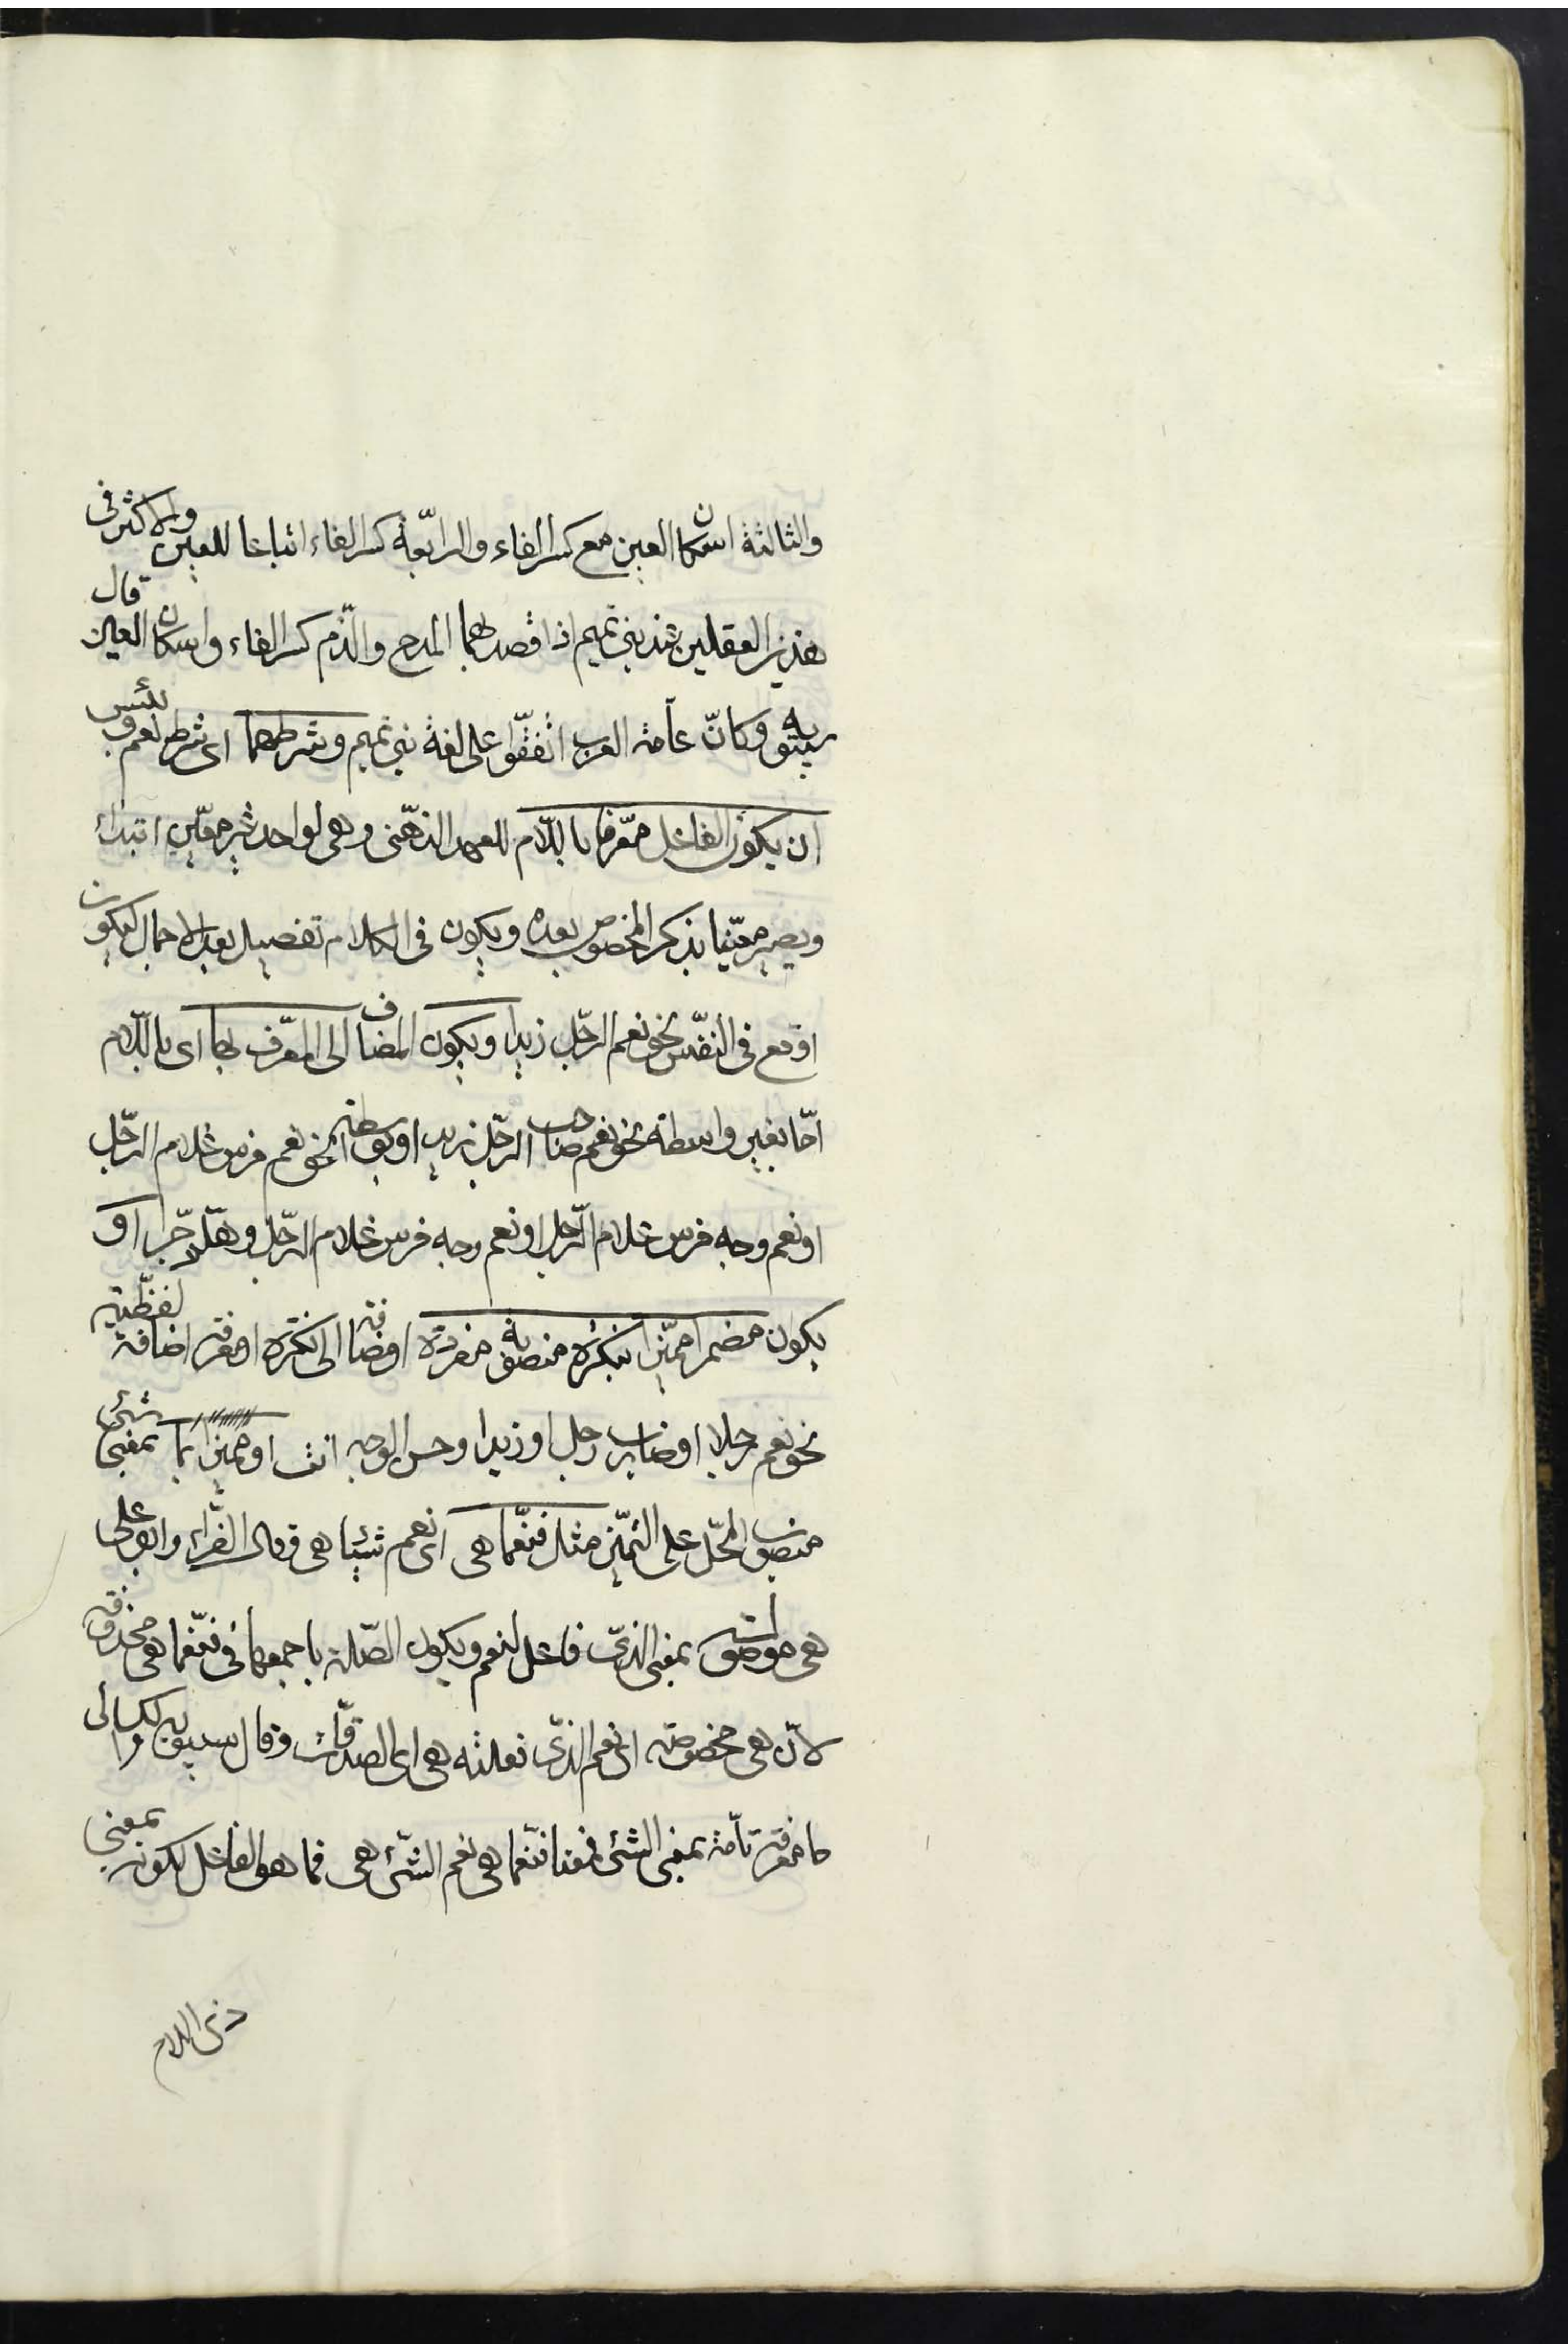 والثالثة اسكان العين مع كسر الفاء والرابعة كسر الفاء اتباعا للعين والاكثر فى
هذين الفعلين عند بنى تميم اذا قصد بهما المدح والذم كسر الفاء واسكان العين قال
سيبويه وكانّ عامة العرب اتفقوا على لغة بنى تميم وشرطهما اى شرط نعم وبئس
ان يكون الفاعل معرفا باللام للعهد الذهنى وهى لواحد غير معين ابتداء
ويصير معينا بذكر المخصوص بعده ويكون فى الكلام تفصيل بعد الاجمال ليكون
اوقع فى النفس نحو نعم الرجل زيد ويكون المضاف الى المعرف بها اى باللام
امّا بغير واسطة نحو نعم صاحب الرجل زيد او بواسطة نحو نعم فرس غلام الرجل
او نعم وجه فرس غلام الرجل او نعم وجه فرس غلام الرجل وهلّم جرّا او
يكون مضمرا مميزا بنكرة منصوبة مفردة او مضافة الى نكرة او معرفة اضافة لفظية
نحو نعم رجلا او ضارب رجل او زيدا وحسن الوجه انت او مميزا بما بمعنى شئ
منصوب المحل على التميز مثل فنعّما هى اى نعم شيئا هى وقال الفرّاء وابو على
هى موصولة بمعنى الذى فاعل لنعم ويكون الصلة باجمعها فى فنعّما هى محذوفة
لانّ هى مخصوصة اى نعم الذى فعلته هى اى الصدقات وقال سيبويه والكسائى
ما معرفة تامّة بمعنى الشئ فمعنا فنعّما هى نعم الشئ هى فما هو الفاعل لكونه بمعنى
ذى اللام